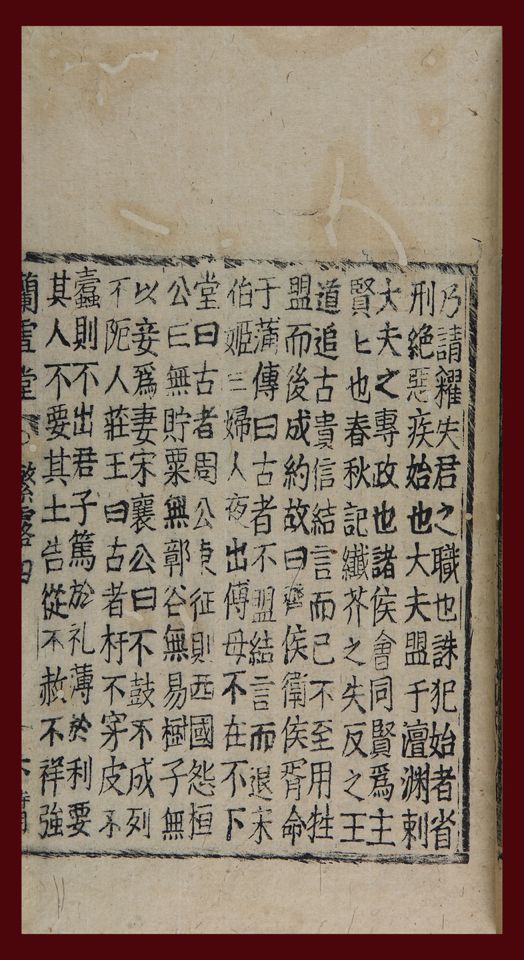 乃請糴失君之職也誅犯始者省
刑絶惡疾始也大夫盟于澶淵刺
大夫之專政也諸侯會同賢爲主
賢匕也春秋記纖芥之失反之王
道追古貴信結言而已不至用牲
盟而後成約故曰齊侯衛侯胥命
于蒲傳曰古者不盟結言而退宋
伯姬曰婦人夜出傅母不在不下
堂曰古者周公東征則西國怨桓
公曰無貯粟無鄣谷無易樹子無
以妾爲妻宋襄公曰不鼓不成列
不阨人莊王曰古者杅不穿皮不
蠹則不出君子篤於礼薄於利要
其人不要其土告從不赦不祥強
蘭雪堂 繁露四